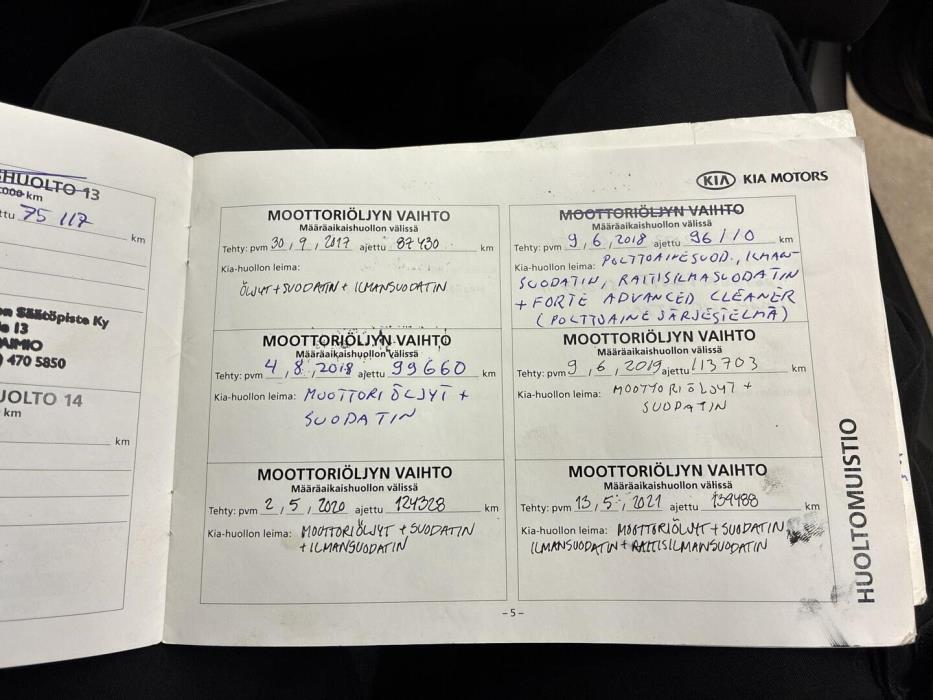 HUOLTO 13
000 km
75 117
km
Säätöpiste Ky
13
) 470 5850
UOLTO 14
km
km
KIA KIA MOTORS
MOOTTORIÖLJYN VAIHTO
Määräaikaishuollon välissä
Tehty: pvm 30, 9, 2017 ajettu 87430 km
Kia-huollon leima:
ÖLJYT + SUODATIN + ILMANSUODATIN
MOOTTORIÖLJYN VAIHTO
Määräaikaishuollon välissä
Tehty: pvm 9, 6, 2018 ajettu 96110 km
Kia-huollon leima: POLTTOAINESUOD., ILMAN-
SUODATIN, RAITISILMASUODATIN
+ FORTE ADVANCED CLEANER
(POLTTOAINE JÄRJESTELMÄ)
MOOTTORIÖLJYN VAIHTO
Määräaikaishuollon välissä
Tehty: pvm 4, 8, 2018 ajettu 99660 km
Kia-huollon leima: MOOTTORIÖLJYT +
SUODATIN
MOOTTORIÖLJYN VAIHTO
Määräaikaishuollon välissä
Tehty: pvm 9, 6, 2019 ajettu 113703 km
Kia-huollon leima: MOOTTORIÖLJYT +
SUODATIN
MOOTTORIÖLJYN VAIHTO
Määräaikaishuollon välissä
Tehty: pvm 2, 5, 2020 ajettu 124328 km
Kia-huollon leima: MOOTTORIÖLJYT + SUODATIN
+ ILMANSUODATIN
MOOTTORIÖLJYN VAIHTO
Määräaikaishuollon välissä
Tehty: pvm 13, 5, 2021 ajettu 139488 km
Kia-huollon leima: MOOTTORIÖLJYT + SUODATIN
ILMANSUODATIN + RAITISILMANSUODATIN
HUOLTOMUISTIO
- 5 -